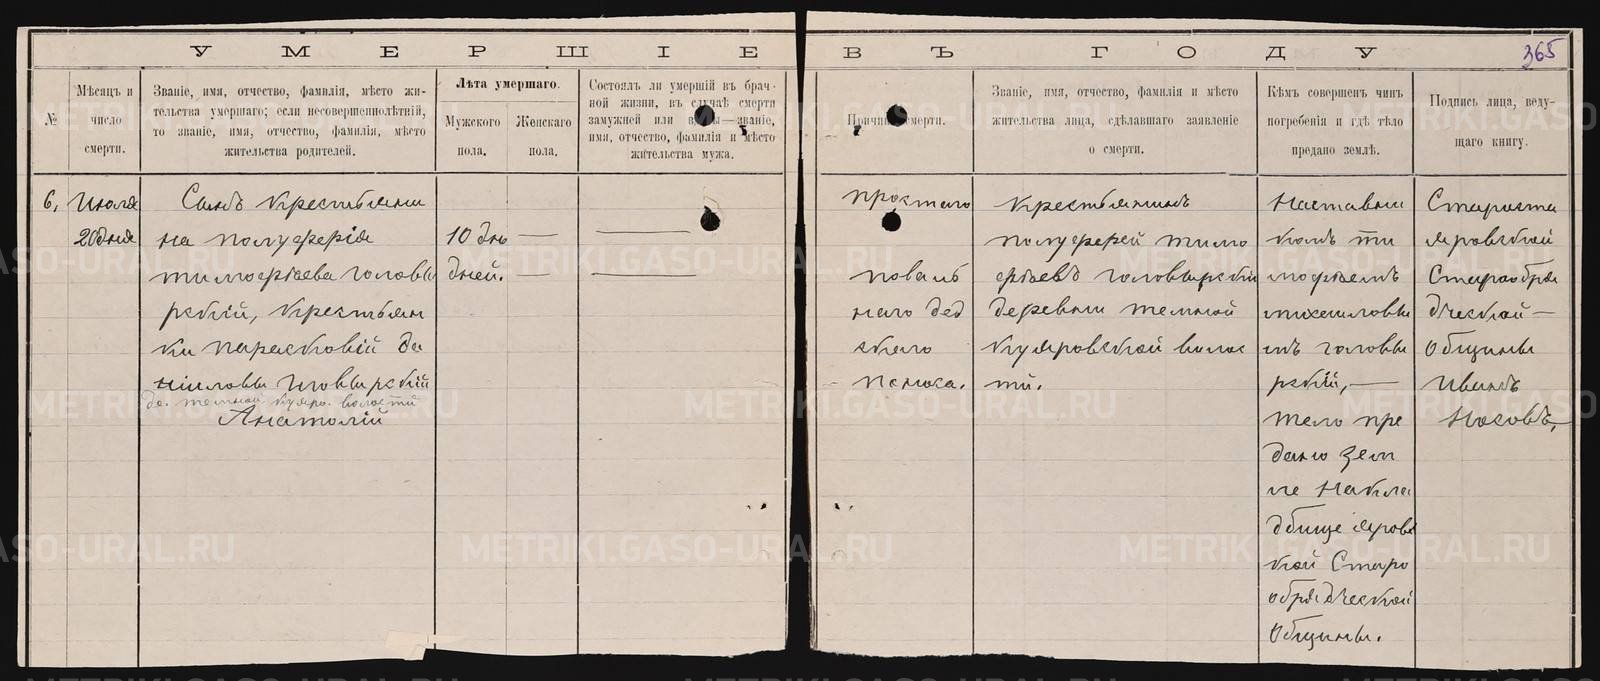 УМЕРШІЕ ВЪ ГОДУ
365
№
Мѣсяцъ и
число
смерти.
Званіе, имя, отчество, фамилія, мѣсто жи-
тельства умершаго; если несовершеннолѣтній,
то званіе, имя, отчество, фамилія, мѣсто
жительства родителей.
Лѣта умершаго.
Мужского
пола.
Женскаго
пола.
Состоялъ ли умершій въ брач-
ной жизни, въ случаѣ смерти
замужней или вдовы—званіе,
имя, отчество, фамилія и мѣсто
жительства мужа.
Причина смерти.
Званіе, имя, отчество, фамилія и мѣсто
жительства лица, сдѣлавшаго заявленіе
о смерти.
Кѣмъ совершенъ чинъ
погребенія и гдѣ тѣло
предано землѣ.
Подпись лица, веду-
щаго книгу.
6,
Июля
20 дня
Сынъ крестьяни
на полуферія
тимофѣева головы
рский, крестьян
ки парасковій да
ниловы головырский
де. темной куяро. волости
Анатолій
10 днь
дней.
простаго
поваль
наго дед
скаго
поноса.
крестьянинъ
полуферей тимо
фѣевъ головырский
деревни темной
куяровской волос
ти.
Наставни
комъ ти
мофѣемъ
михеиловы
мъ головы
рский,
тело пре
дано зем
ле на кла
дбище яровс
кой Старо
обрядческой
Общины.
Староста
яровской
Старообря
дческой
общины
Иванъ
Носовъ,
METRIKI.GASO-URAL.RU